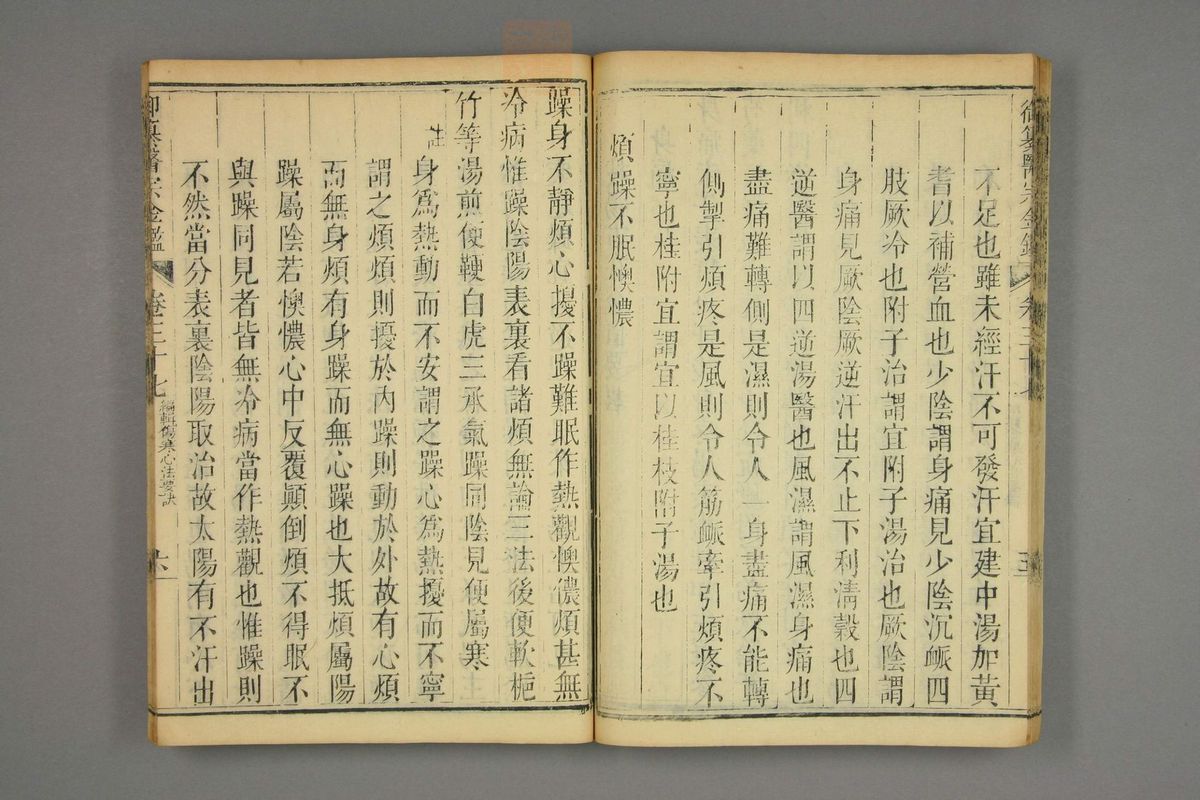 御纂醫宗金鑑 卷三十七 五
不足也雖未經汗不可發汗宜建中湯加黃
耆以補營血也少陰謂身痛見少陰沉脈四
肢厥冷也附子治謂宜附子湯治也厥陰謂
身痛見厥陰厥逆汗出不止下利清穀也四
逆醫謂以四逆湯醫也風濕謂風濕身痛也
盡痛難轉側是濕則令人一身盡痛不能轉
側掣引煩疼是風則令人筋脈牽引煩疼不
寧也桂附宜謂宜以桂枝附子湯也
煩躁不眠懊憹
躁身不靜煩心擾不躁難眠作熱觀懊憹煩甚無
冷病惟躁陰陽表裏看諸煩無論三法後便軟梔
竹等湯煎便鞕白虎三承氣躁同陰見便屬寒
註
身爲熱動而不安謂之躁心爲熱擾而不寧
謂之煩煩則擾於內躁則動於外故有心煩
而無身煩有身躁而無心躁也大抵煩屬陽
躁屬陰若懊憹心中反覆顛倒煩不得眠不
與躁同見者皆無冷病當作熱觀也惟躁則
不然當分表裏陰陽取治故太陽有不汗出
御纂醫宗金鑑 卷三十七 編輯傷寒心法要訣 六